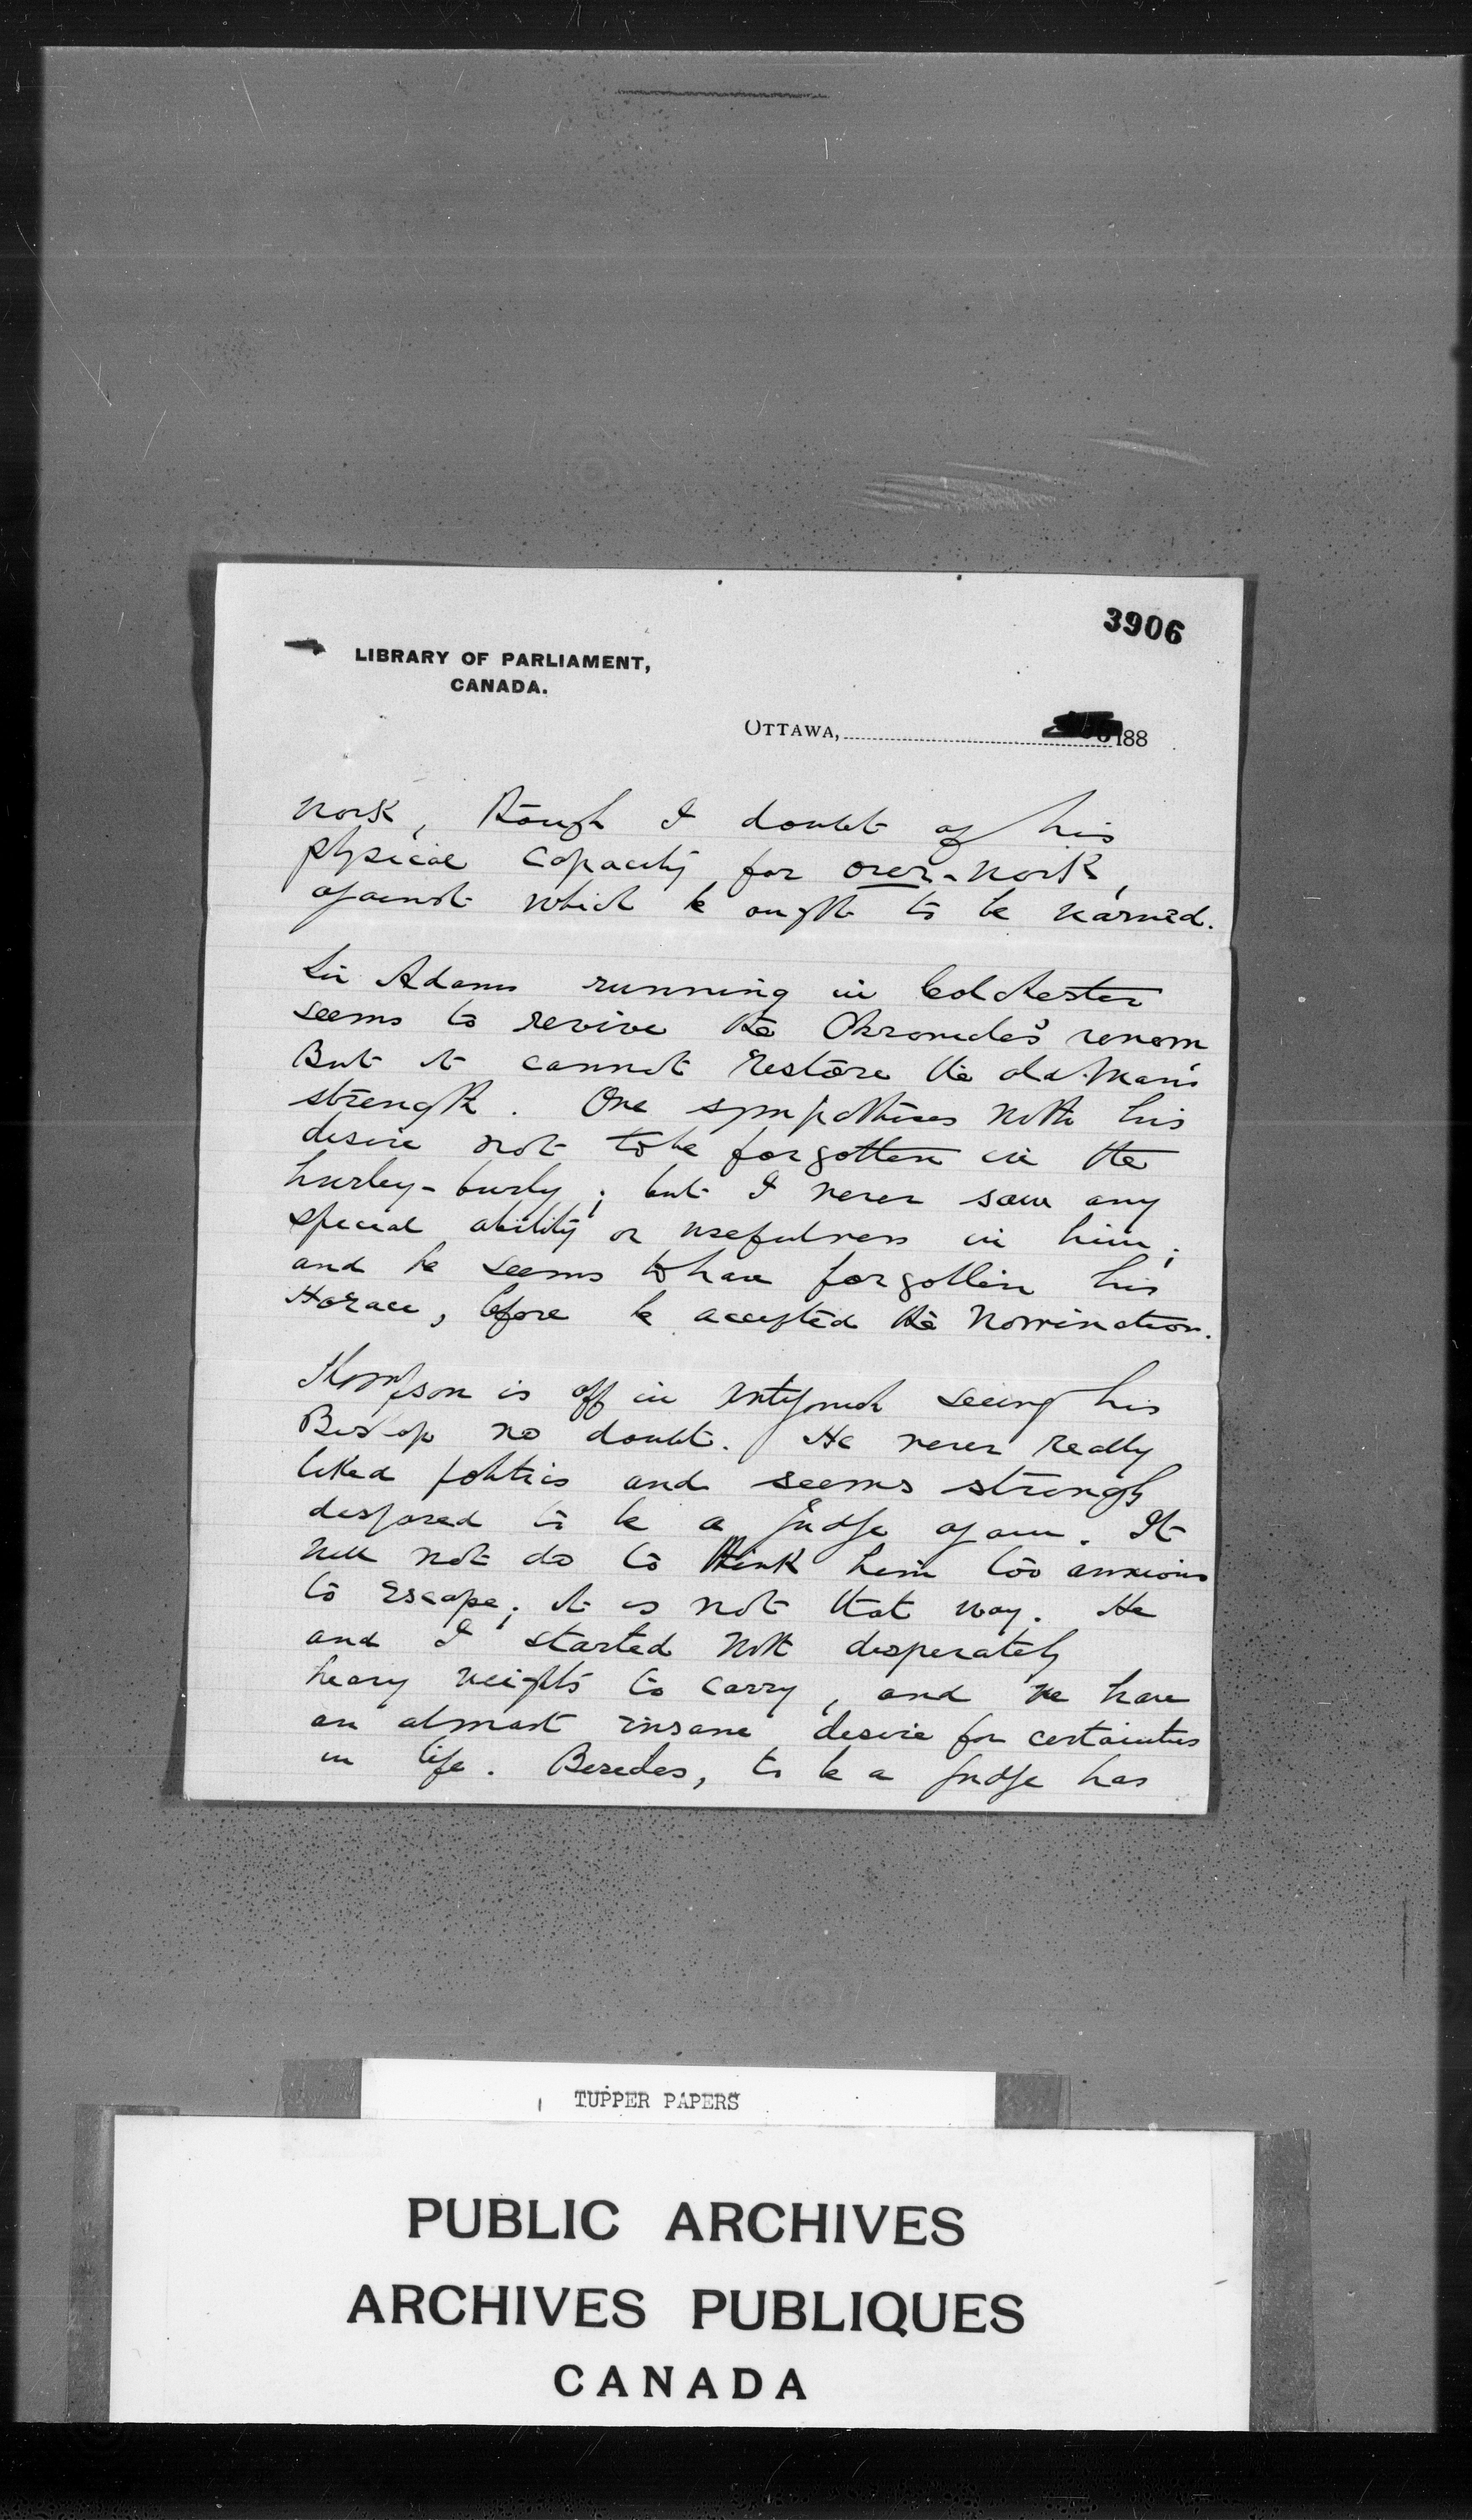 3906
LIBRARY OF PARLIAMENT,
CANADA.
OTTAWA, 188
work, though I doubt of his
physical capacity for over-work,
against which he ought to be warned.
Sir Adams running in Colchester
seems to revive the Chronicle's venom
But it cannot restore the old man's
strength. One sympathises with his
desire not to be forgotten in the
hurley-burly; but I never saw any
special ability or usefulness in him;
and he seems to have forgotten his
Horace, before he accepted the nomination.
Thompson is off in Antigonish seeing his
Bishop no doubt. He never really
liked politics and seems strongly
disposed to be a judge again. It
will not do to think him too anxious
to escape; it is not that way. He
and I started with desperately
heavy weights to carry, and we have
an almost insane desire for certainties
in life. Besides, to be a judge has
TUPPER PAPERS
PUBLIC ARCHIVES
ARCHIVES PUBLIQUES
CANADA